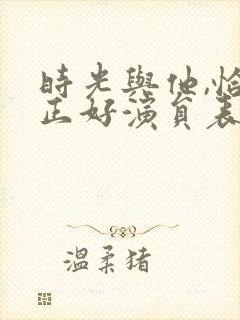 時光與他,恰
正好演員表
溫柔猪